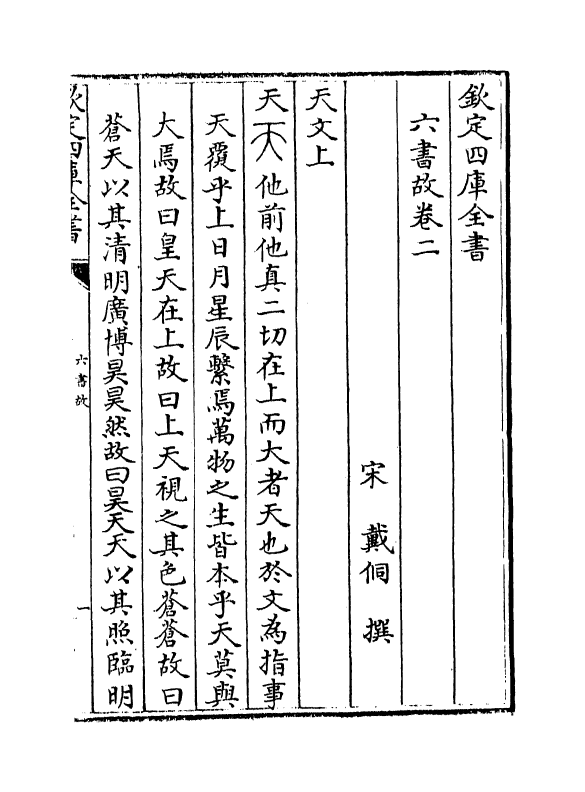 欽定四庫全書
六書故卷二
宋　戴侗　撰
天文上
天𠀘他前他真二切在上而大者天也於文為指事
天覆乎上日月星辰繫焉萬物之生皆本乎天莫與
大焉故曰皇天在上故曰上天視之其色蒼蒼故曰
蒼天以其清明廣博昊昊然故曰昊天天以其照臨明
欽定四庫全書
六書故
一